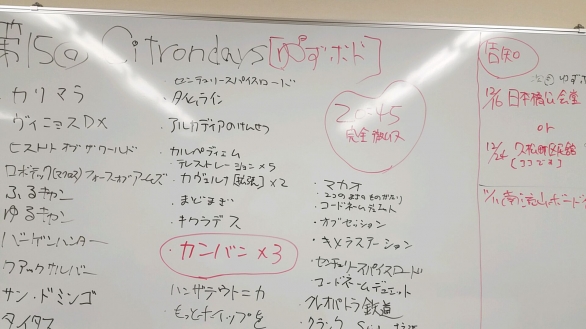 第15回 Citrondays [ゆずボド]
・カリマラ
・ヴィニョスDX
ヒストリー オブ ザ ワールド
ロボテック(マクロス)フォースオブアームズ
ふるキャン
ゆるキャン
バーゲンハンター
クアックサルバー
サン・ドミンゴ
タイタス
・センチュリースパイスロード
・タイムライン
アルカディアのけんせつ
カルペディエム
テレストレーション×5
・カヴェルナ[拡張]×2
・まどまぎ
・キクラデス
・カンバン×3
ハンザテウトニカ
もっとホイップを
20:45
完全撤収
・マカオ
・コードネームデュエット
・オブセッション
・キメラステーション
・センチュリースパイスロード
・コードネームデュエット
・クレオパトラ鉄道
告知
12/16 日本橋公会堂
or
12/24 久松町区民館
[ココです]